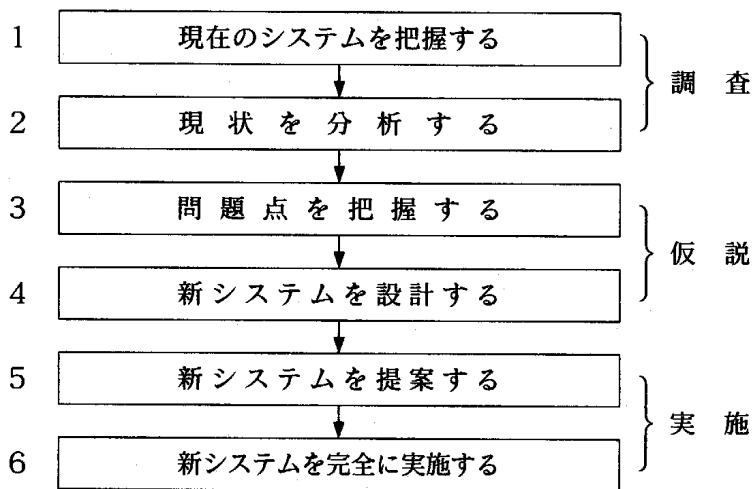 1 現在のシステムを把握する
調査
2 現状を分析する
3 問題点を把握する
仮説
4 新システムを設計する
5 新システムを提案する
実施
6 新システムを完全に実施する